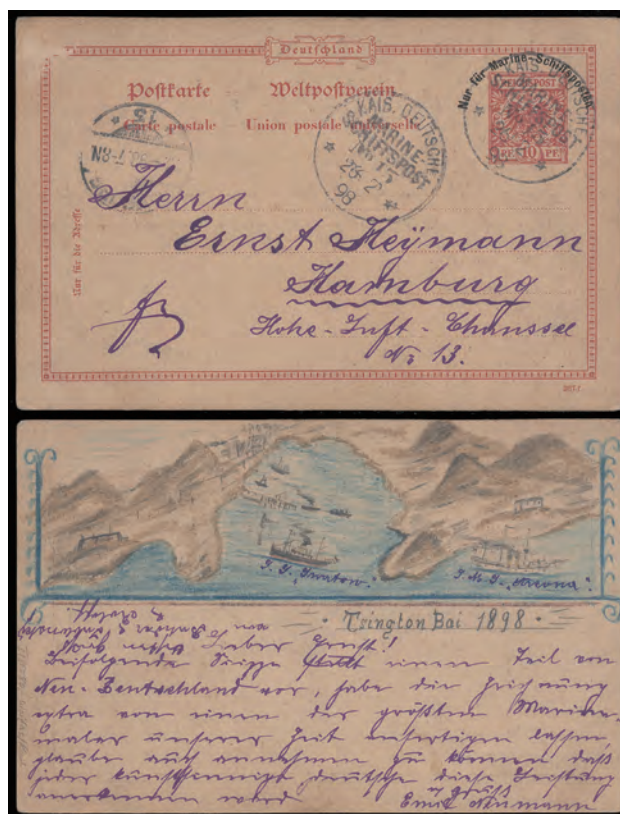 Deutschland
Postkarte — Weltpostverein
Carte postale — Union postale universelle
Nur für Marine-Schiffsposten
REICHSPOST
10 PF
KAIS. DEUTSCHE
MARINE-
SCHIFFSPOST
26 2
98
KAIS. DEUTSCHE
MARINE-
SCHIFFSPOST
98
13
7-8N
Nur für die Adresse
Herrn
Ernst Heymann
Hamburg
Hohe-Luft-Chaussee
No 13.
S. S. "Swatow".
S. M. S. "Arcona".
Tsington Bai 1898
Lieber Ernst!
Beifolgende Skizze stellt einen Teil von
Neu-Deutschland vor, habe die Zeichnung
extra von einem der größten Marine-
maler unserer Zeit anfertigen lassen,
glaube auch annehmen zu können daß
jeder kunstsinnige deutsche diese Leistung
anerkennen wird
Gruß
Emil Neumann